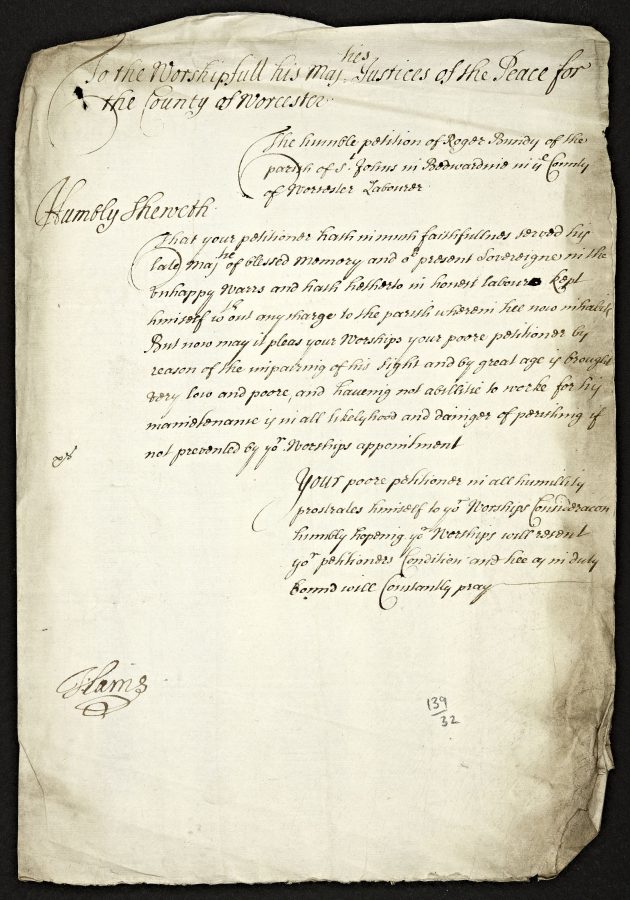 To the Worshipfull his Maj ties Justices of the Peace for
the County of Worcester
The humble petition of Roger Bundy of the
parish of St Johns in Bedwardine in ye County
of Worcester Labourer
Humbly Sheweth
That your petitioner hath in much faithfullnes served his
late Maj tie of blessed memory and or present Sovereigne in the
unhappy Warrs and hath hetherto in honest labours kept
himself wth out any charge to the parish wherein hee now inhabits
But now may it pleas your Worships your poore petitioner by
reason of the impairing of his sight and by great age is brought
very low and poore, and haveing not abillitie to worke for his
maintenance is in all likelyhood and dainger of perishing if
not prevented by yor Worships appointment
Your poore petitioner in all humillity
prostrates himself to yor Worships Consideracon
humbly hopeing yor Worships will resent
yor petitioners Condition and hee as in duty
bound will Constantly pray
139
32